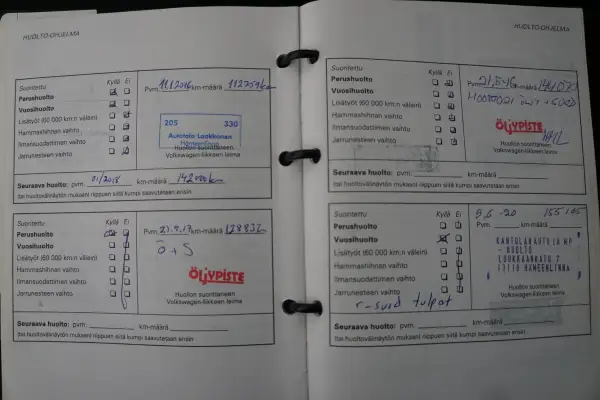 HUOLTO-OHJELMA
Suoritettu Kyllä Ei
Perushuolto
Vuosihuolto
Lisätyöt (60 000 km:n välein)
Hammashihnan vaihto
Ilmansuodattimen vaihto
Jarrunesteen vaihto
Pvm. km-määrä
205 330
Autotalo Laakkonen
Hämeenlinna
Huollon suorittaneen
Volkswagen-liikkeen leima
Seuraava huolto: pvm. 01/2018 km-määrä 142000km
(tai huoltovälinäytön mukaan) riippuen siitä kumpi saavutetaan ensin
Suoritettu Kyllä Ei
Perushuolto
Vuosihuolto
Lisätyöt (60 000 km:n välein)
Hammashihnan vaihto
Ilmansuodattimen vaihto
Jarrunesteen vaihto
Pvm. km-määrä
Ö+S
ÖLJYPISTE
Huollon suorittaneen
Volkswagen-liikkeen leima
Seuraava huolto: pvm. km-määrä
(tai huoltovälinäytön mukaan) riippuen siitä kumpi saavutetaan ensin
HUOLTO-OHJELMA
Suoritettu Kyllä Ei
Perushuolto
Vuosihuolto
Lisätyöt (60 000 km:n välein)
Hammashihnan vaihto
Ilmansuodattimen vaihto
Jarrunesteen vaihto
Pvm. km-määrä
ÖLJYPISTE
Huollon suorittaneen
Volkswagen-liikkeen leima
Seuraava huolto: pvm. km-määrä
(tai huoltovälinäytön mukaan) riippuen siitä kumpi saavutetaan ensin
Suoritettu Kyllä Ei
Perushuolto
Vuosihuolto
Lisätyöt (60 000 km:n välein)
Hammashihnan vaihto
Ilmansuodattimen vaihto
Jarrunesteen vaihto
r-suid tulpat
5,6 -20
Pvm. km-määrä
KANTOLAN AUTO JA MP
- HUOLTO
LOUKKAANKATU 7
13110 HAMEENLINNA
Huollon suorittaneen
Volkswagen-liikkeen leima
Seuraava huolto: pvm. km-määrä
(tai huoltovälinäytön mukaan) riippuen siitä kumpi saavutetaan ensin